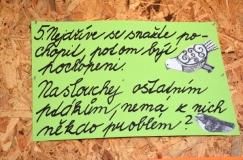 5. Nejdříve se snažte po-
chopit, potom být
pochopeni.
Naslouchej ostatním
ptákům, nemá k nich
někdo problém?